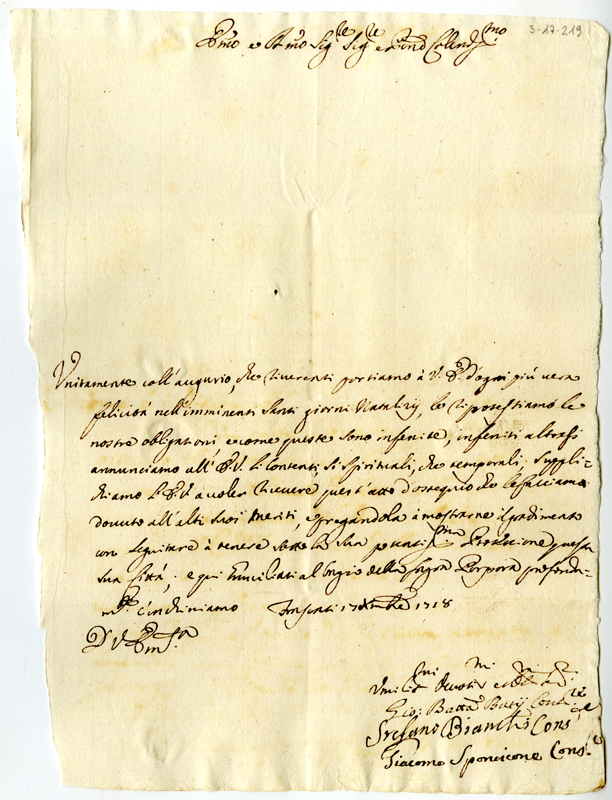 3-17-219
Emo e Rmo Sigre Sigre e Prōn Colendmo
Unitamente coll'augurio, che riverenti portiamo à V. Em.ª d'ogni più vera
felicità nell'imminenti santi giorni Natalizij, le riprotestiamo le
nostre obligationi e come queste sono infinite, infiniti altresì
annunciamo all'E.V. li contenti, sì spirituali, che temporali, suppli=
chiamo l'E.V. a voler ricevere quest'atto d'ossequio che le facciamo
dovuto all'alti suoi meriti, e pregandola à mostrarne il godimento
con seguitare à tenere sotto la sua potentma Protezione questa
sua Città; e qui umiliati al bagio della Sagra Porpora profonda-
mte c'inchiniamo Xmbre 1718
D V Em.ª
Umil Devoti ed
Gio: Batta Consre
Stefano Bianchi Consre
Giacomo Sponcicone Consre